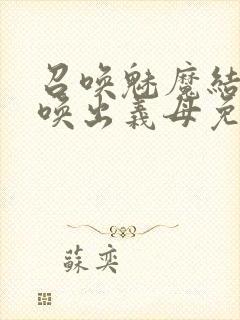 召唤魅魔結
唤出義母免
蘇奕